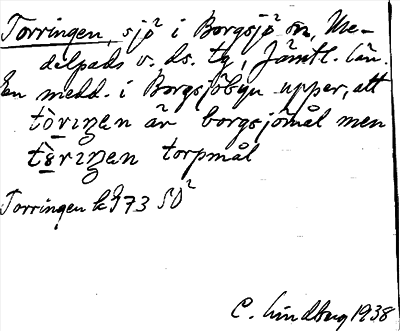 Torringen, sjö i Borgsjö sn, Me-
delpads v. ds. tg, Jämtl. län.
En medd. i Borgsjöbyn upper, att
tòriŋen är borgsjömål men
tèriŋen torpmål
Torringen k 973 SO
C. Lindberg 1938